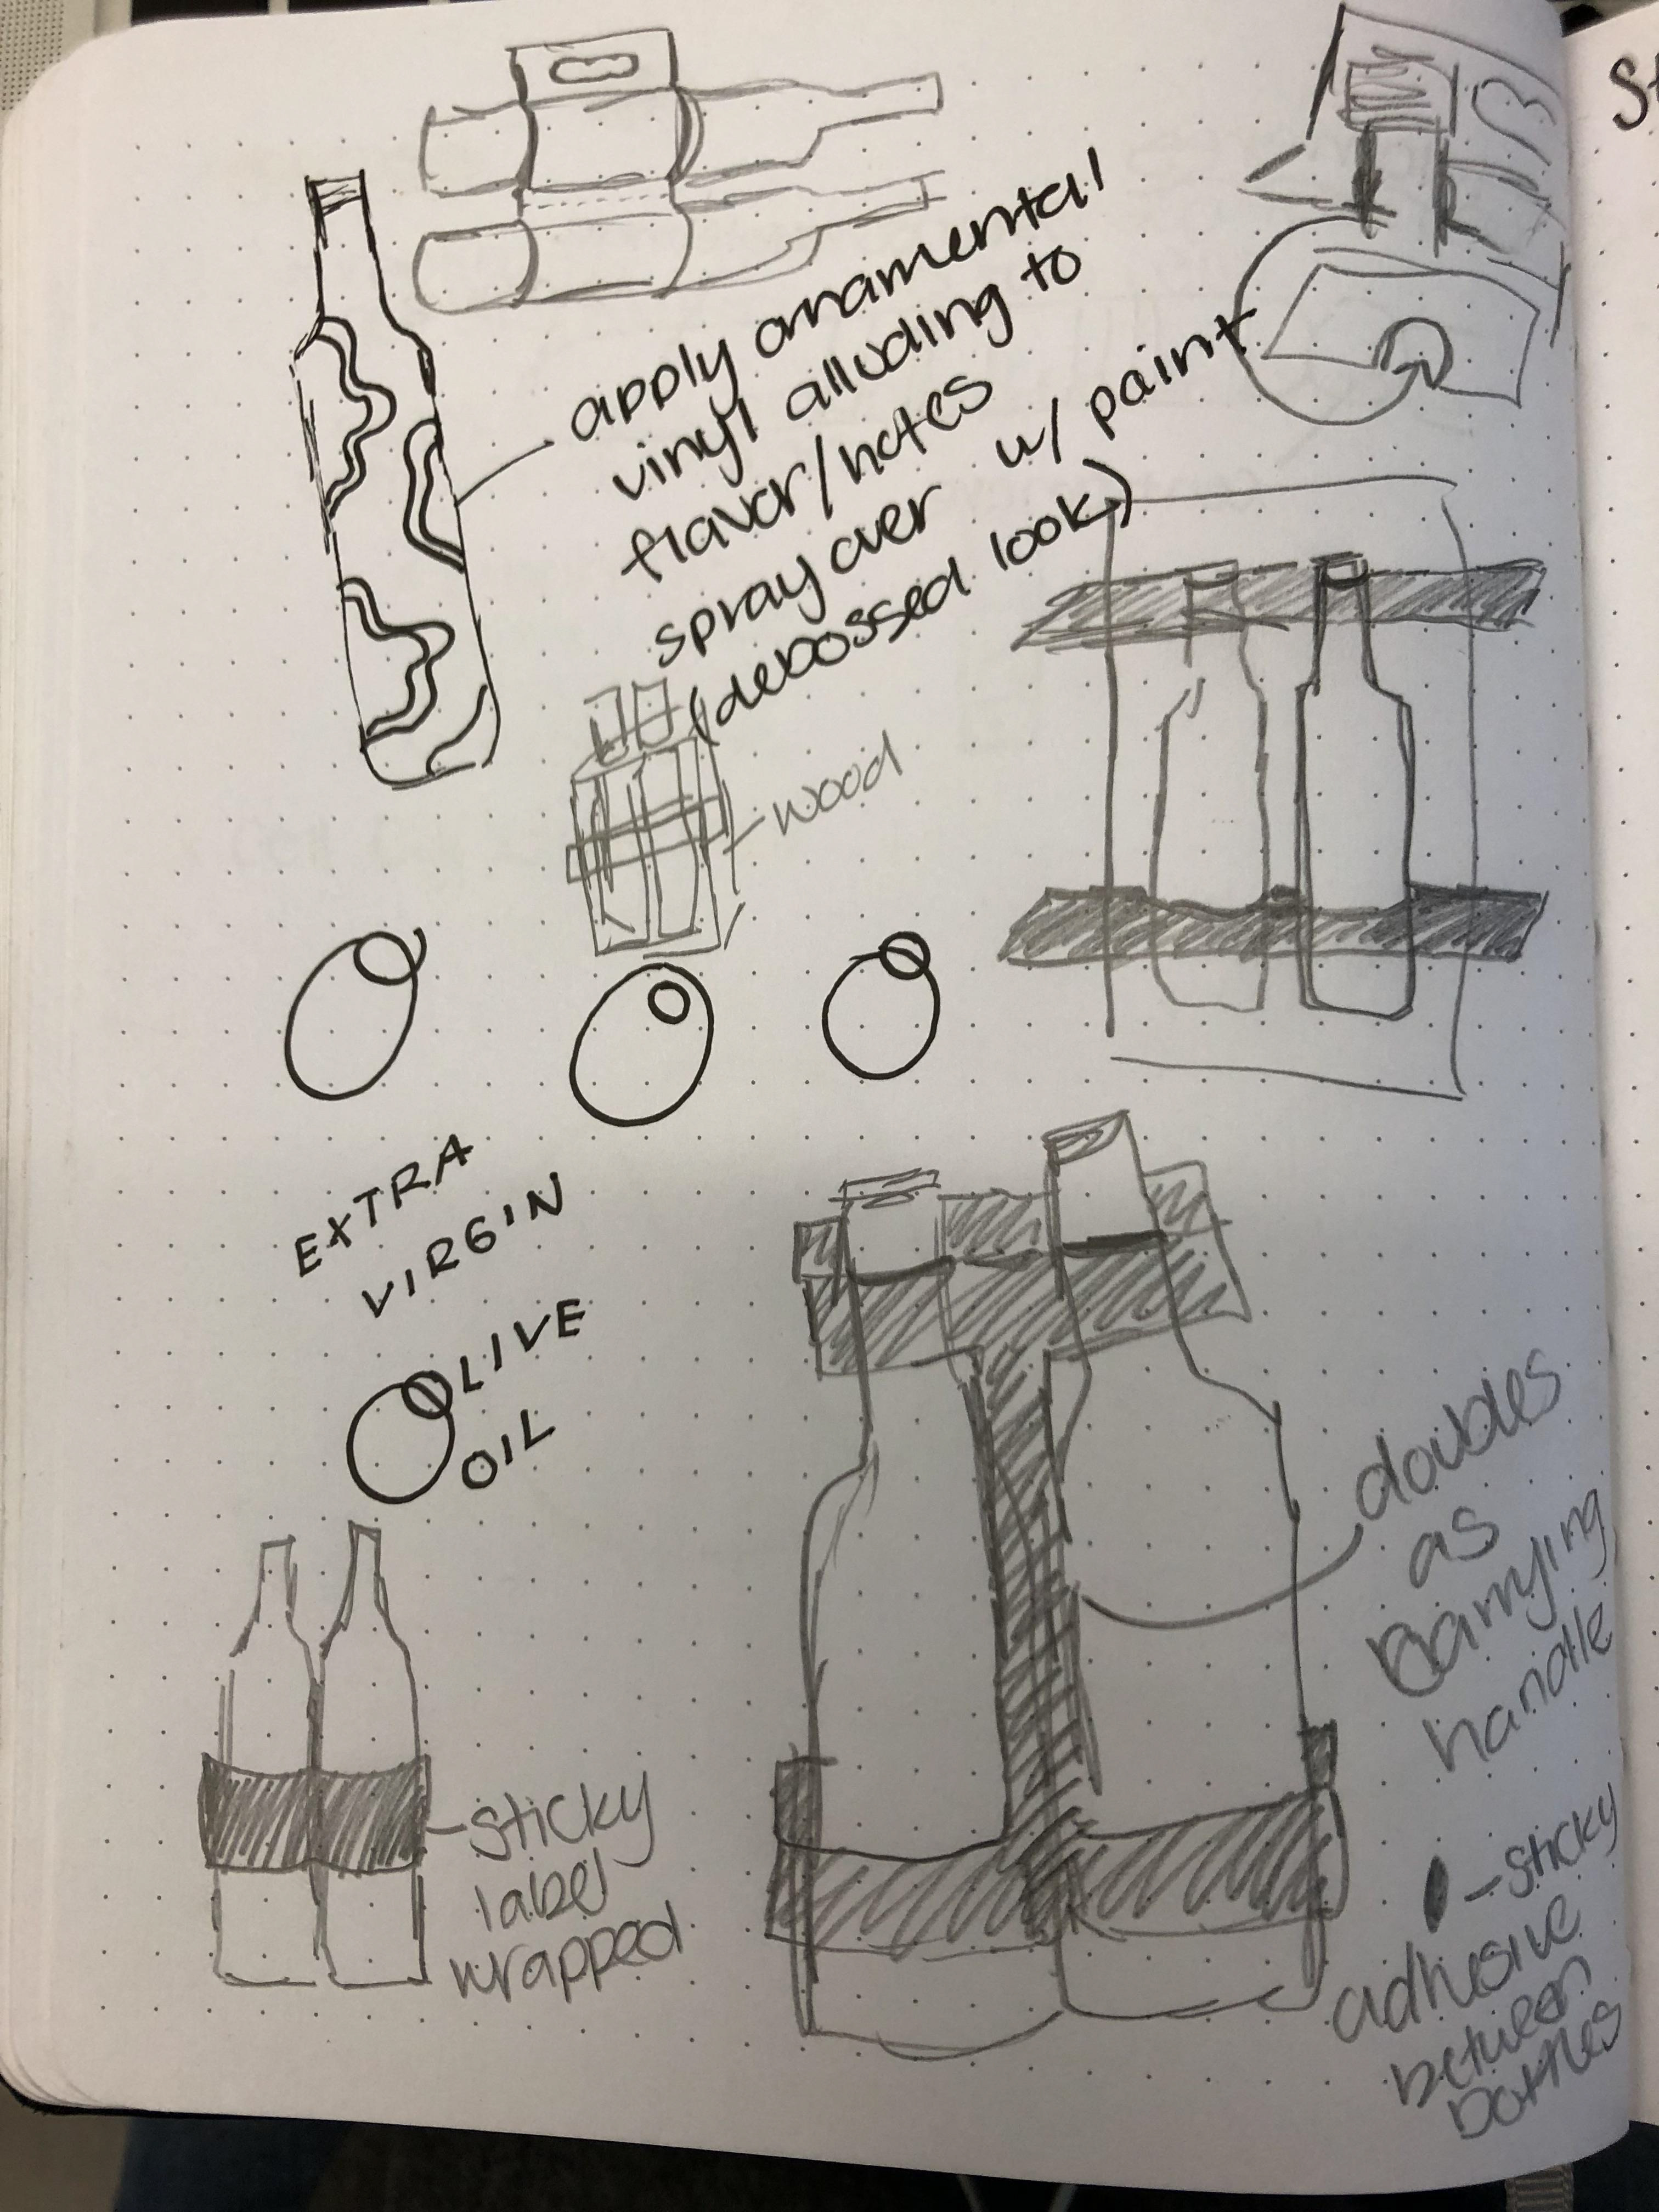 St
apply ornamental
vinyl alluding to
flavor/notes
spray over w/ paint
(debossed look)
wood
EXTRA
VIRGIN
OLIVE
OIL
doubles
as
carrying
handle
sticky
label
wrapped
sticky
adhesive
between
bottles